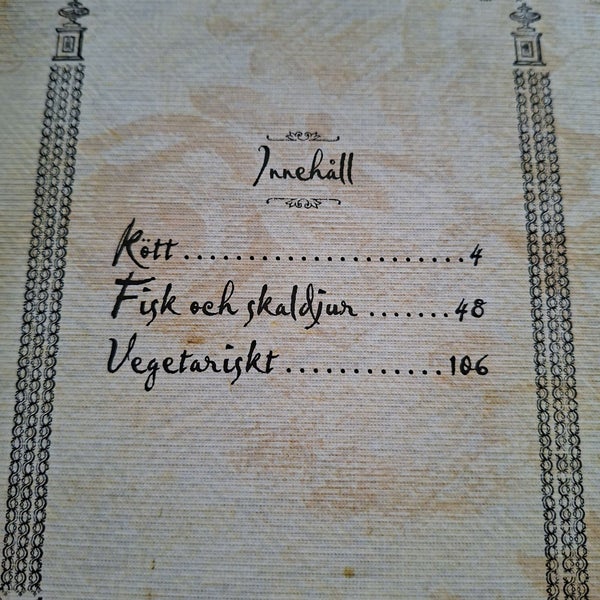 Innehåll
Kött......................4
Fisk och skaldjur .......48
Vegetariskt ............106